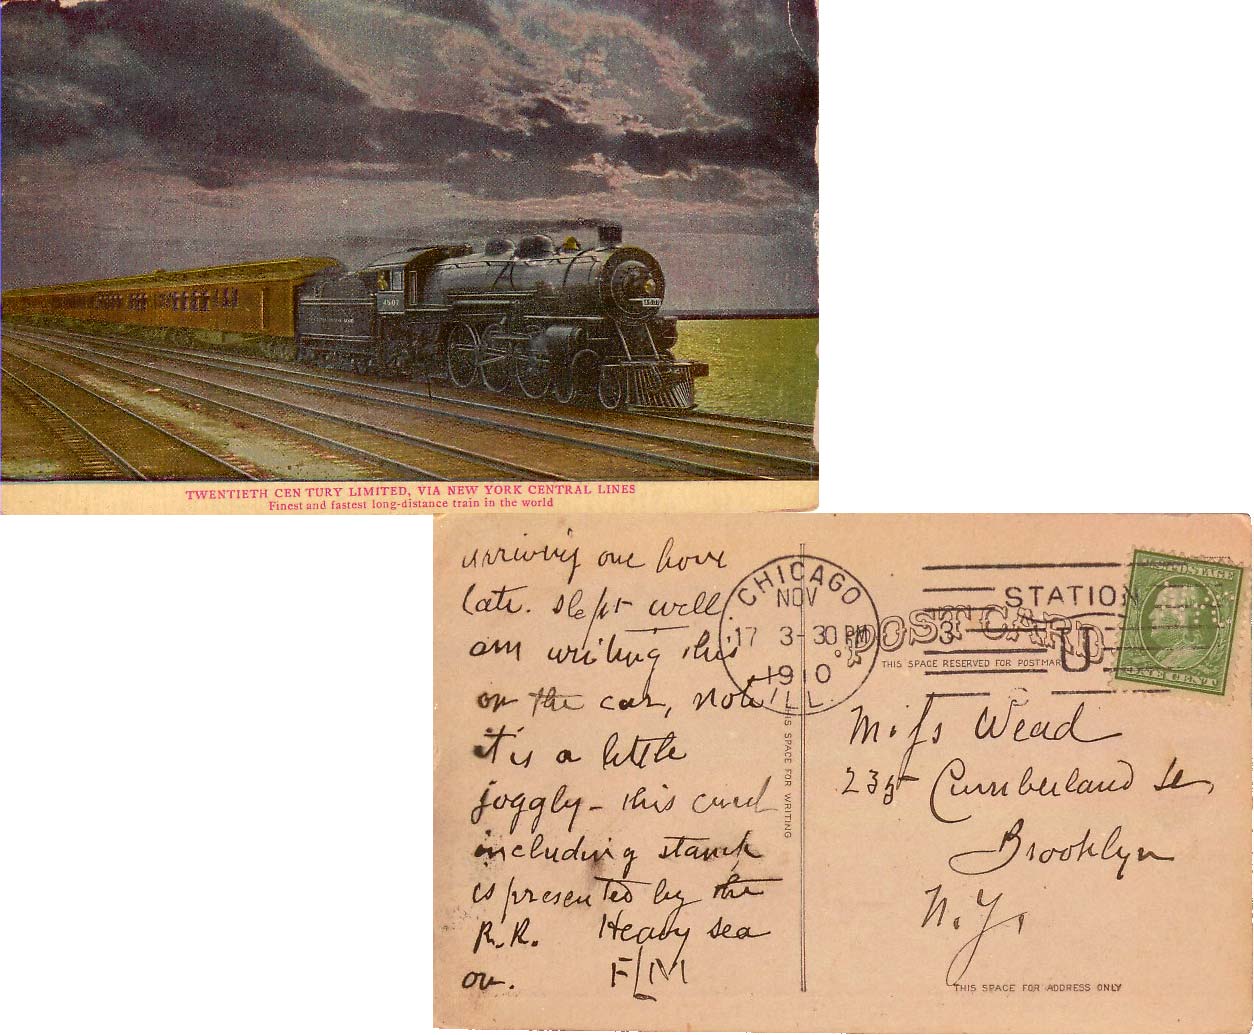 4507
TWENTIETH CENTURY LIMITED, VIA NEW YORK CENTRAL LINES
Finest and fastest long-distance train in the world
arriving one hour
late. slept well
am writing this
on the car, note
it is a little
joggly - this card
including stamp
is presented by the
R.R. Heavy sea
on. FLM
CHICAGO
NOV
17 3-30 PM
1910
ILL.
STATION
U
POST CARD
THIS SPACE RESERVED FOR POSTMARK
THIS SPACE FOR WRITING
Miss Wead
235 Cumberland St
Brooklyn
N.Y.
THIS SPACE FOR ADDRESS ONLY